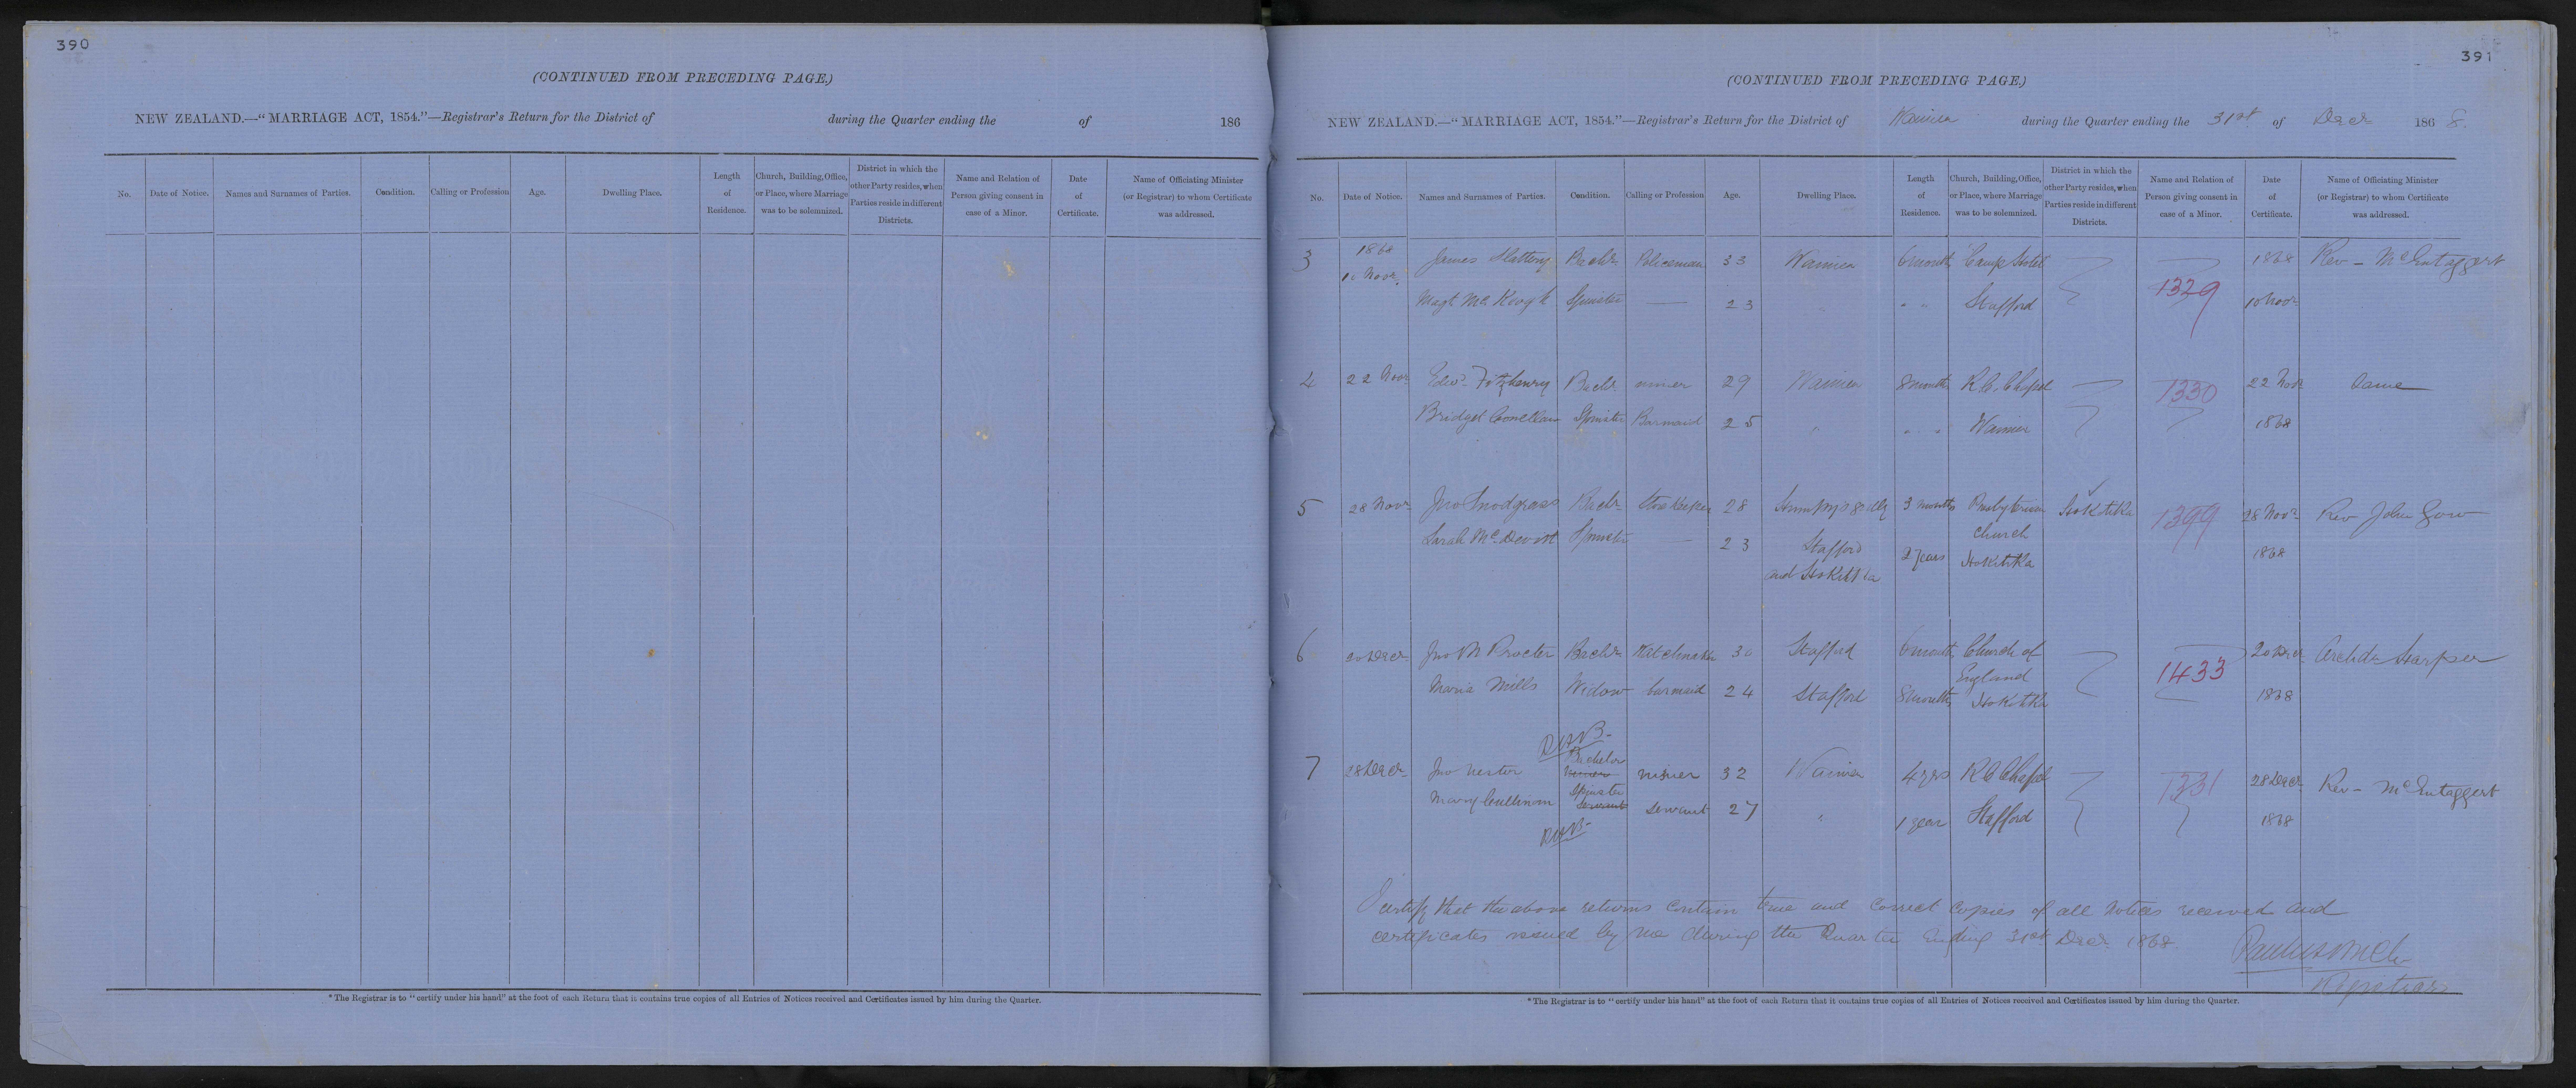 390
(CONTINUED FROM PRECEDING PAGE.)
NEW ZEALAND.—"MARRIAGE ACT, 1854."—Registrar's Return for the District of during the Quarter ending the of 186
No. Date of Notice. Names and Surnames of Parties. Condition. Calling or Profession Age. Dwelling Place. Length of Residence. Church, Building, Office, or Place, where Marriage was to be solemnized. District in which the other Party resides, when Parties reside in different Districts. Name and Relation of Person giving consent in case of a Minor. Date of Certificate. Name of Officiating Minister (or Registrar) to whom Certificate was addressed.
*The Registrar is to "certify under his hand" at the foot of each Return that it contains true copies of all Entries of Notices received and Certificates issued by him during the Quarter.
391
(CONTINUED FROM PRECEDING PAGE.)
NEW ZEALAND.—"MARRIAGE ACT, 1854."—Registrar's Return for the District of Waimea during the Quarter ending the 31st of Decr 1868.
No. Date of Notice. Names and Surnames of Parties. Condition. Calling or Profession Age. Dwelling Place. Length of Residence. Church, Building, Office, or Place, where Marriage was to be solemnized. District in which the other Party resides, when Parties reside in different Districts. Name and Relation of Person giving consent in case of a Minor. Date of Certificate. Name of Officiating Minister (or Registrar) to whom Certificate was addressed.
3 1868 James Slattery Bachr Policeman 33 Waimea 6 month Camp Hotel 1868 Rev — McEntaggert
10 Novr. Magt McKeogh Spinster — 23 " " " Stafford 1329 10 Novr
4 22 Novr Edwd Fitzhenry Bachr miner 29 Waimea 8 month R.C. Chapel 1330 22 Novr Same
Bridget Conellan Spinster Barmaid 25 " " " Waimea 1868
5 28 Novr Jno Snodgrass Bachr Storekeeper 28 Stumpy's Gully 3 months Presbyterian Hokitika 1399 28 Novr Rev John Gow
Sarah McDevitt Spinster — 23 Stafford 2 years Church 1868
and Hokitika Hokitika
6 20 Decr Jno M Procter Bachr Watchmaker 30 Stafford 6 month Church of 1433 20 Decr Archdn Harper
Maria Mills Widow barmaid 24 Stafford 8 month England Hokitika 1868
Bachelor
7 28 Decr Jno Nestor miner 32 Waimea 4 yrs R C Chapel 1331 28 Decr Rev — McEntaggert
Spinster
Mary Cullinom servant 27 " 1 year Stafford 1868
I certify that the above returns contain true and correct copies of all notices received and
certificates issued by me during the Quarter Ending 31st Decr 1868
Registrar
*The Registrar is to "certify under his hand" at the foot of each Return that it contains true copies of all Entries of Notices received and Certificates issued by him during the Quarter.